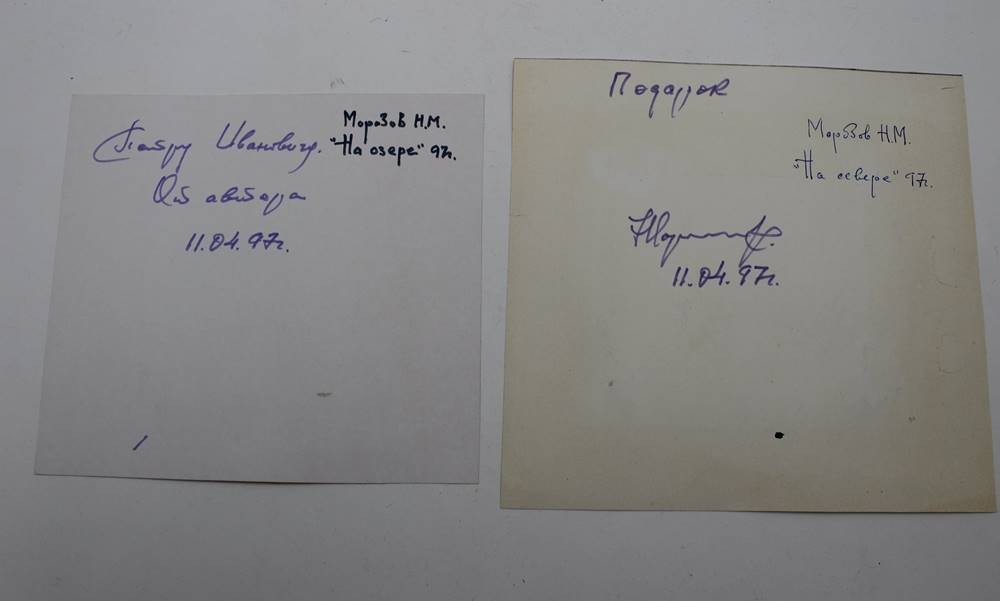 Петру Ивановичу.
От автора
11.04.97г.
Морозов Н.М.
"На озере" 97г.
Подарок
Морозов Н.М.
"На севере" 97г.
11.04.97г.